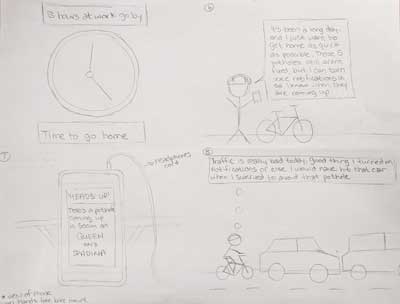 8 hours at work go by
Time to go home
6
It's been a long day,
and I just want to
get home as quick
as possible. These
potholes still arent
fixed, but I can turn
on notifications
so I know when they
are coming up
7
→ headphones
HEADS UP!
There's a pothole
coming up
in 500m at
QUEEN
AND
SPADINA
* view of phone
8
Traffic is really bad today. Good thing I turned on
notifications or else I would have hit that car
when I swerved to avoid that pothole